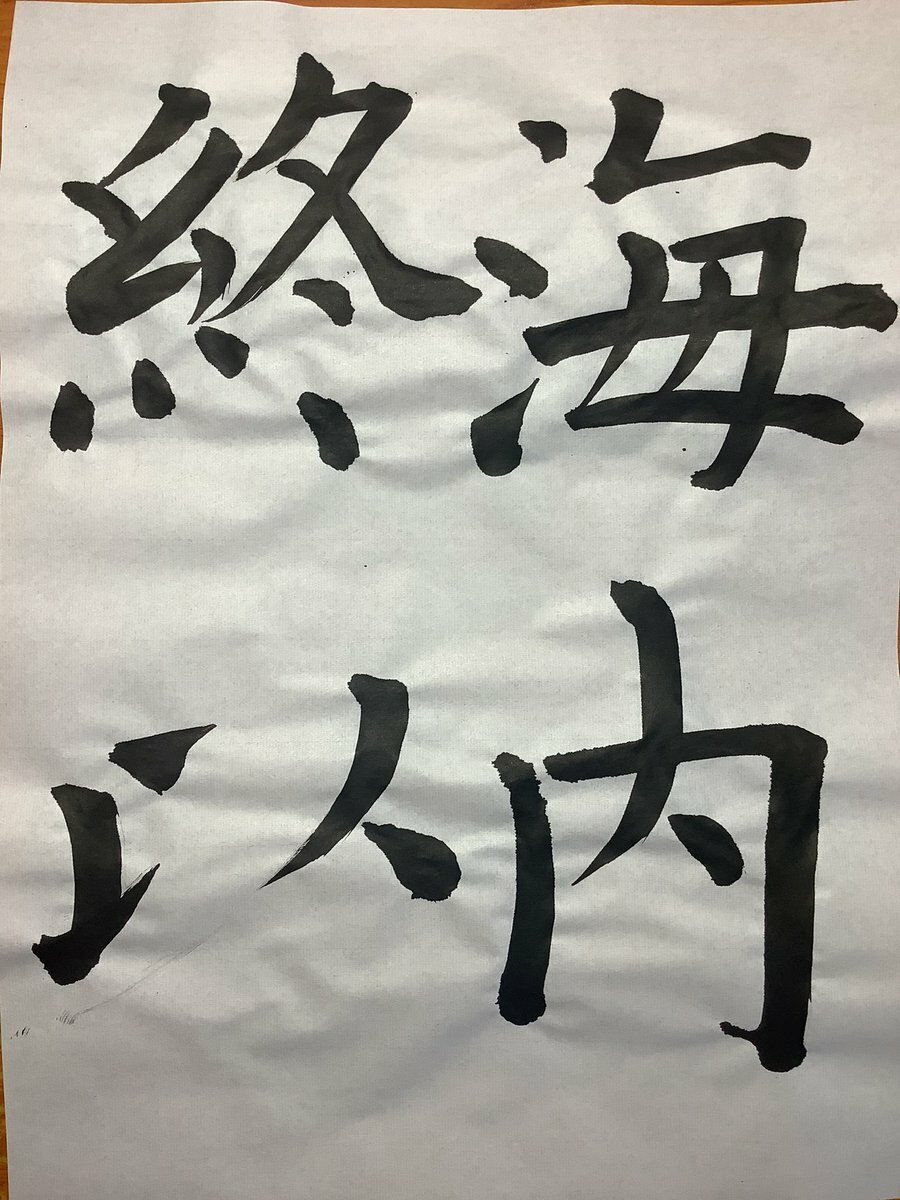 海内
終以